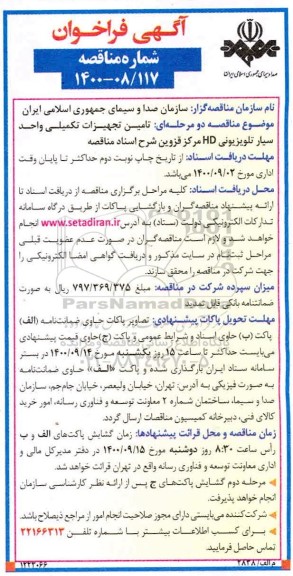 آگهی فراخوان
شماره مناقصه
۱۴۰۰-۰۸/۱۱۷
صدا و سیمای جمهوری اسلامی ایران
نام سازمان مناقصه‌گزار: سازمان صدا و سیمای جمهوری اسلامی ایران
موضوع مناقصه دو مرحله‌ای: تامین تجهیزات تکمیلی واحد
سیار تلویزیونی HD مرکز قزوین شرح اسناد مناقصه
مهلت دریافت اسناد: از تاریخ چاپ نوبت دوم حداکثر تا پایان وقت
اداری مورخ ۱۴۰۰/۰۹/۰۲ می‌باشد.
محل دریافت اسناد: کلیه مراحل برگزاری مناقصه از دریافت اسناد تا
ارائه پیشنهاد مناقصه‌گران و بازگشایی پاکات از طریق درگاه سامانه
تدارکات الکترونیکی دولت (ستاد) به آدرس www.setadiran.ir انجام
خواهد شد و لازم است مناقصه‌گران در صورت عدم عضویت قبلی
مراحل ثبت‌نام در سایت مذکور و دریافت گواهی امضا الکترونیکی را
جهت شرکت در مناقصه را محقق سازند.
میزان سپرده شرکت در مناقصه: مبلغ ۷۹۷/۳۶۹/۳۷۵ ریال به صورت
ضمانتنامه بانکی قابل تمدید
مهلت تحویل پاکات پیشنهادی: تصاویر پاکات حاوی ضمانت‌نامه (الف)
پاکت (ب) حاوی اسناد و شرایط عمومی و پاکت (ج) حاوی قیمت پیشنهادی
می‌بایست حداکثر تا ساعت ۱۵ روز یکشنبه مورخ ۱۴۰۰/۰۹/۱۴ در بستر
سامانه ستاد ایران بارگذاری شده و پاکت «الف» حاوی ضمانت‌نامه
به صورت فیزیکی به آدرس: تهران، خیابان ولیعصر، خیابان جام‌جم، سازمان
صدا و سیما، ساختمان شماره ۲ معاونت توسعه و فناوری رسانه، امور خرید
کالای فنی، دبیرخانه کمیسیون مناقصات ارسال گردد.
زمان مناقصه و محل قرائت پیشنهادها: زمان گشایش پاکت‌های الف و ب
رأس ساعت ۸:۳۰ روز دوشنبه مورخ ۱۴۰۰/۰۹/۱۵ در دفتر مدیرکل مالی و
اداری معاونت توسعه و فناوری رسانه واقع در تهران قرائت خواهد شد.
مرحله دوم گشایش پاکت‌های ج پس از ارائه نظر کارشناسی سازمان
انجام خواهد پذیرفت.
شرکت‌کننده می‌بایستی دارای مجوز صلاحیت انجام امور از مراجع ذیصلاح باشد.
برای کسب اطلاعات بیشتر با شماره تلفن ۲۲۱۶۶۳۱۳
تماس حاصل فرمایید.
م الف/ ۲۸۳۸
۱۲۲۳۰۶۶